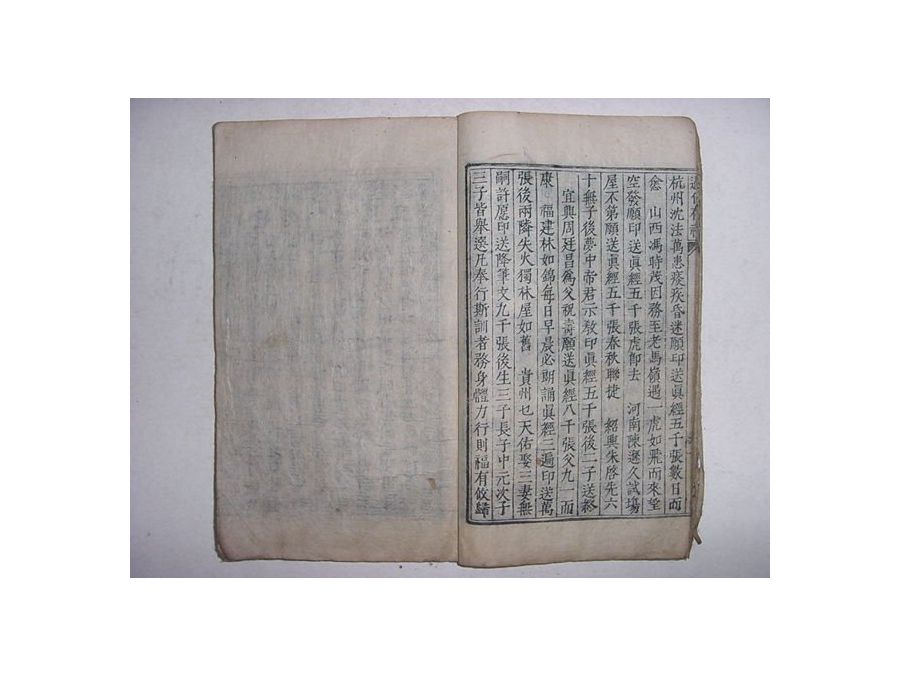 杭州沈法萬患痰疾昏迷願印送眞經五千張數日而
愈　山西馮時茂因務至老馬嶺遇一虎如飛而來望
空發願印送眞經五千張虎卽去　河南陳遜久試塲
屋不第願送眞經五千張春秋聯捷　紹興朱啓先六
十無子後夢中帝君示敎印眞經五千張後二子送終
宜興周廷昌爲父祝壽願送眞經八千張父九一而
康　福建林如錦每日早晨必期誦眞經三遍印送萬
張後兩隣失火獨林屋如舊　貴州乜天佑娶三妻無
嗣許愿印送降筆文九千張後生三子長子中元次子
三子皆舉選凡奉行斯訓者務身體力行則福有攸歸